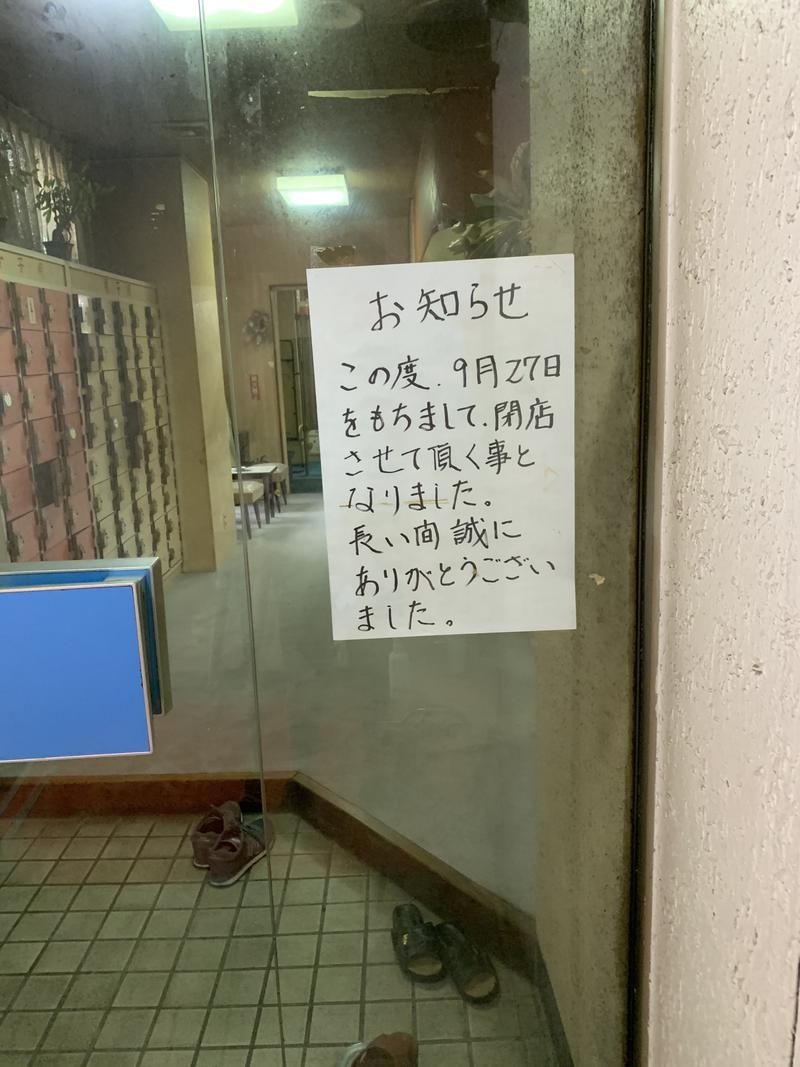 お知らせ
この度、9月27日
をもちまして、閉店
させて頂く事と
なりました。
長い間 誠に
ありがとうござい
ました。